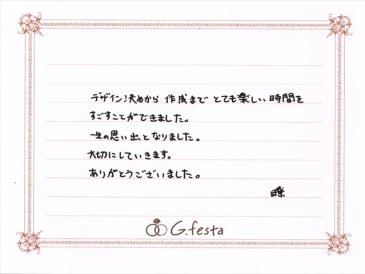 デザイン決めから 作成まで とても楽しい 時間を
すごすことができました。
一生の思い出となりました。
大切にしていきます。
ありがとうございました。
G.festa